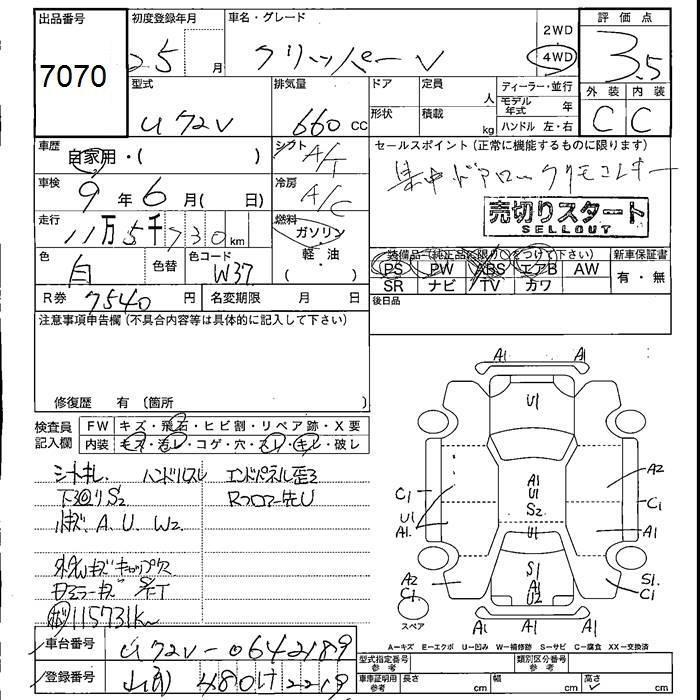 出品番号 初度登録年月 車名・グレード 2WD 評価点
7070 25 月 クリッパーV 4WD 3.5
型式 排気量 ドア 定員 人 ディーラー・並行 外装 内装
U72V 660 cc 形状 積載 kg モデル年式 年 C C
ハンドル 左・右
車歴 自家用・( ) シフト A/T セールスポイント(正常に機能するものに限ります)
車検 9年6月( 日) 冷房 A/C 集中ドアロック リモコンキー
走行 11万5千730km 燃料 ガソリン 売切りスタート
SELLOUT
色 白 色替 色コード W37 (軽・油) 装備品(純正品に限り○をつけて下さい) 新車保証書
PS PW ABS エアB AW 有・無
R券 7540円 名変期限 月 日 SR ナビ TV カワ
後日品
注意事項申告欄(不具合内容等は具体的に記入して下さい)
修復歴 有(箇所 )
検査員 FW キズ・飛石・ヒビ割・リペア跡・X要
記入欄 内装 キズ・汚レ・コゲ・穴・スレ・キレ・破レ
シートキレ ハンドルスレ エンドパネル歪ミ
下廻りS2 Rフロアー先U
小キズ、A、U、W2
キャップ欠
ミラーキズ
115731km
車台番号 U72V-0642189
登録番号 480 2219
A1 A1
U1
A1
U1
S2
U1
S1
A1
U2
C1
U1
A1
A2
C1
A1
A2
C1
S1
C1
スペア
A1 A1 A1
A=キズ E=エクボ U=凹み W=補修跡 S=サビ C=腐食 XX=交換済
型式指定番号 参考 類別区分番号 参考
車庫証明用 参考 長さ cm 幅 cm 高さ cm